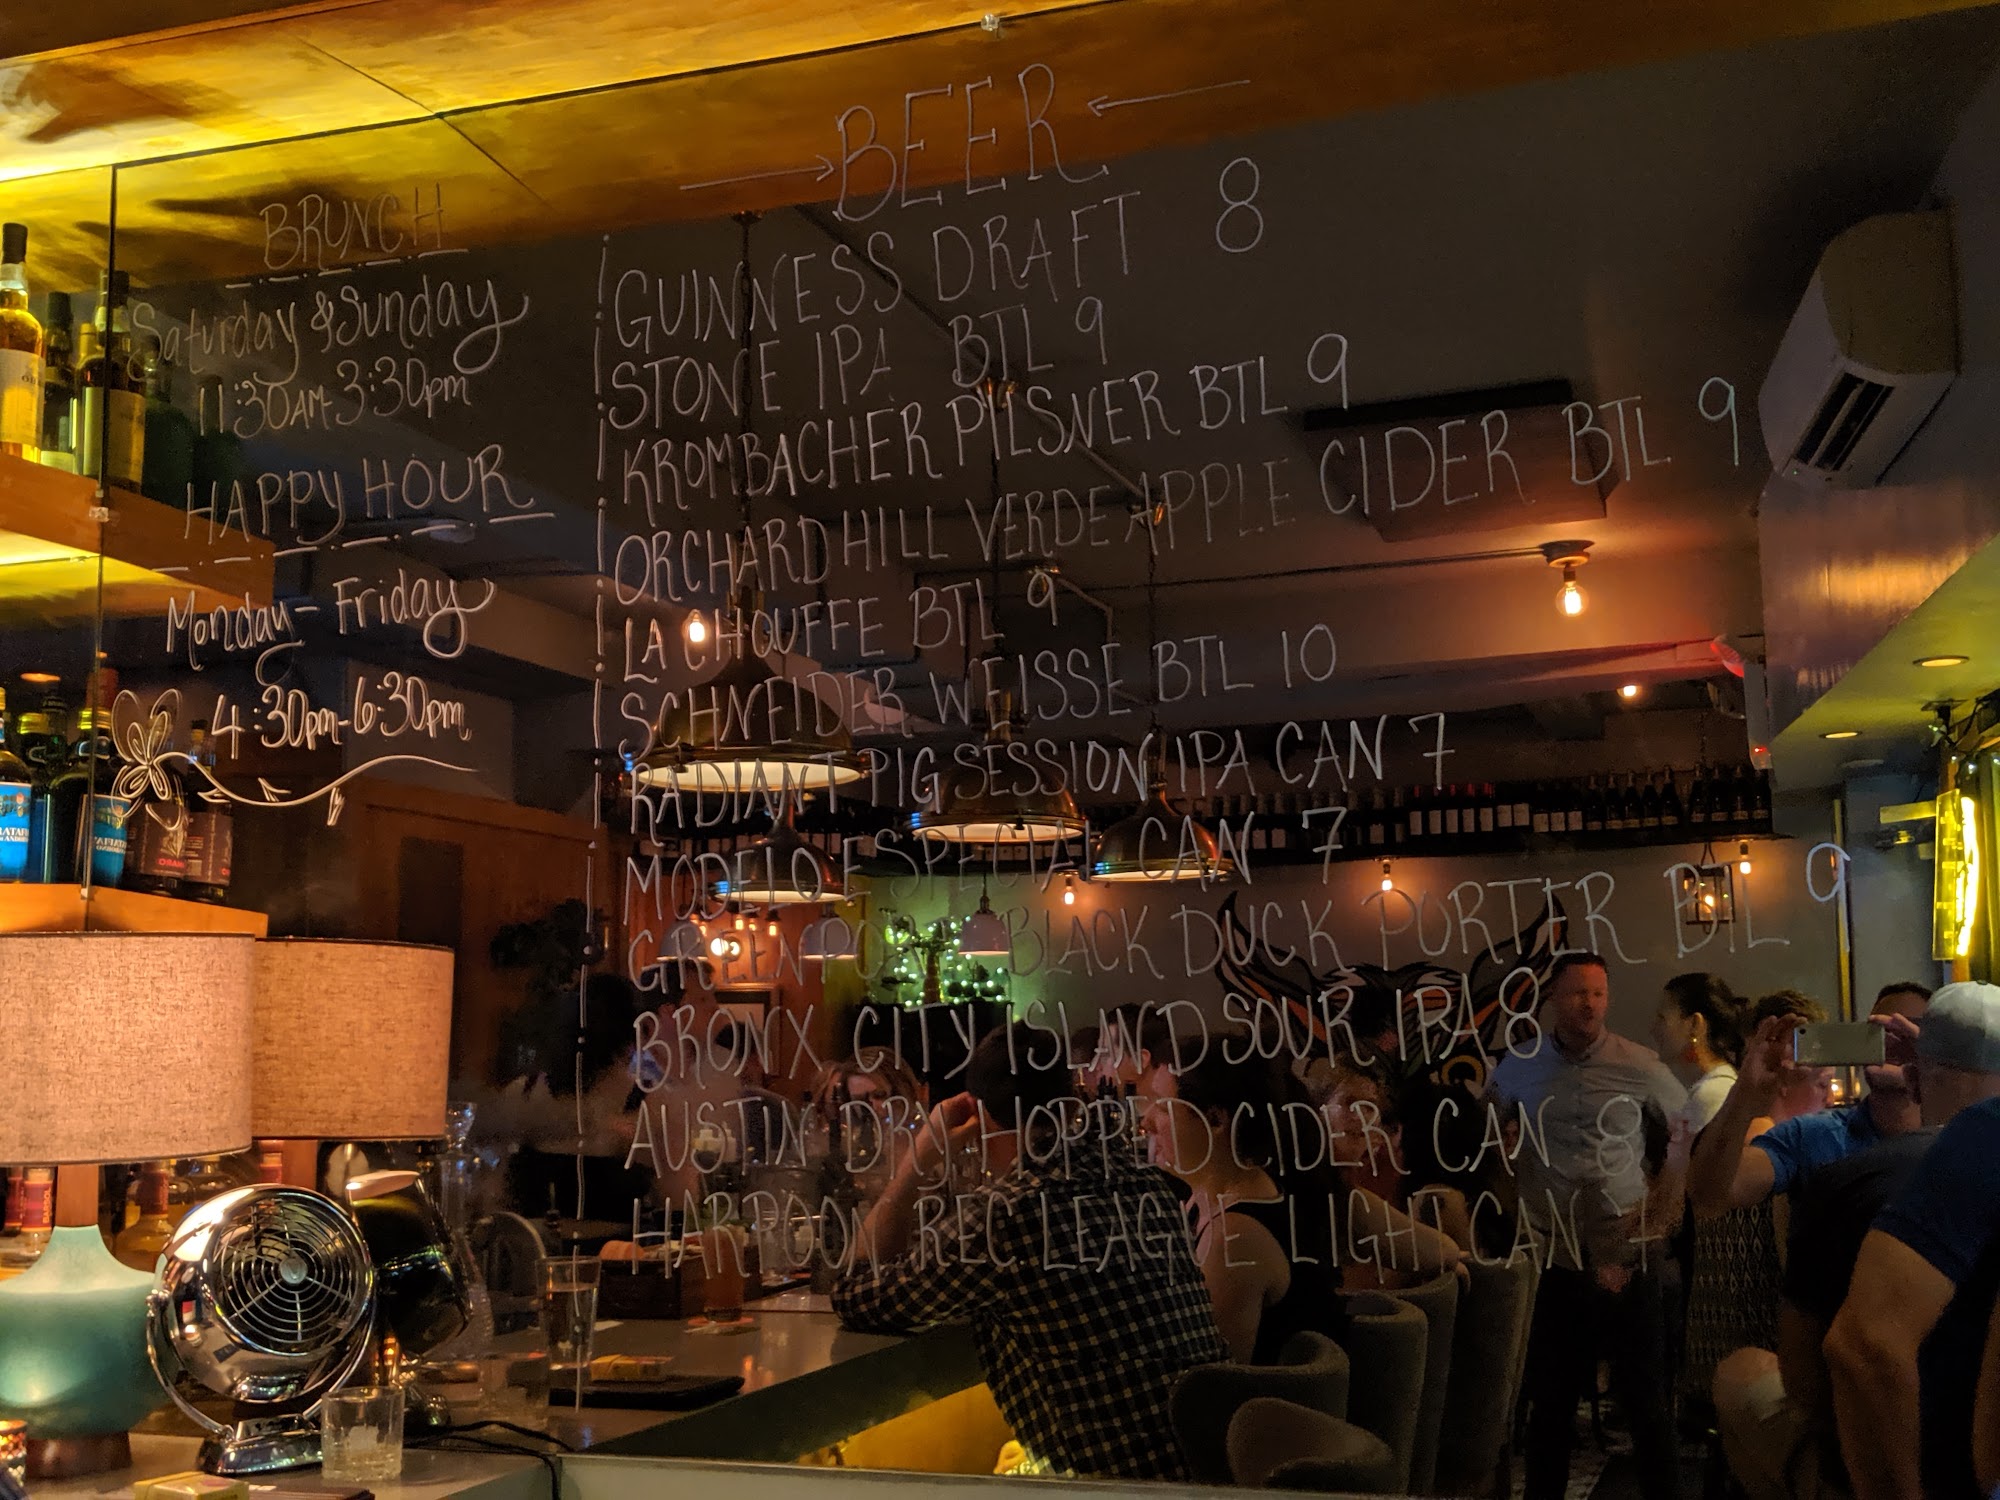 BRUNCH
Saturday & Sunday
11:30AM-3:30pm
HAPPY HOUR
Monday-Friday
4:30pm-6:30pm
BEER
GUINNESS DRAFT 8
STONE IPA BTL 9
KROMBACHER PILSNER BTL 9
ORCHARD HILL VERDE APPLE CIDER BTL 9
LA CHOUFFE BTL 9
SCHNEIDER WEISSE BTL 10
RADIANT PIG SESSION IPA CAN 7
MODELO ESPECIAL CAN 7
GREENPORT BLACK DUCK PORTER BTL 9
BRONX CITY ISLAND SOUR IPA 8
AUSTIN DRY HOPPED CIDER CAN 8
HARPOON REC. LEAGUE LIGHT CAN 7